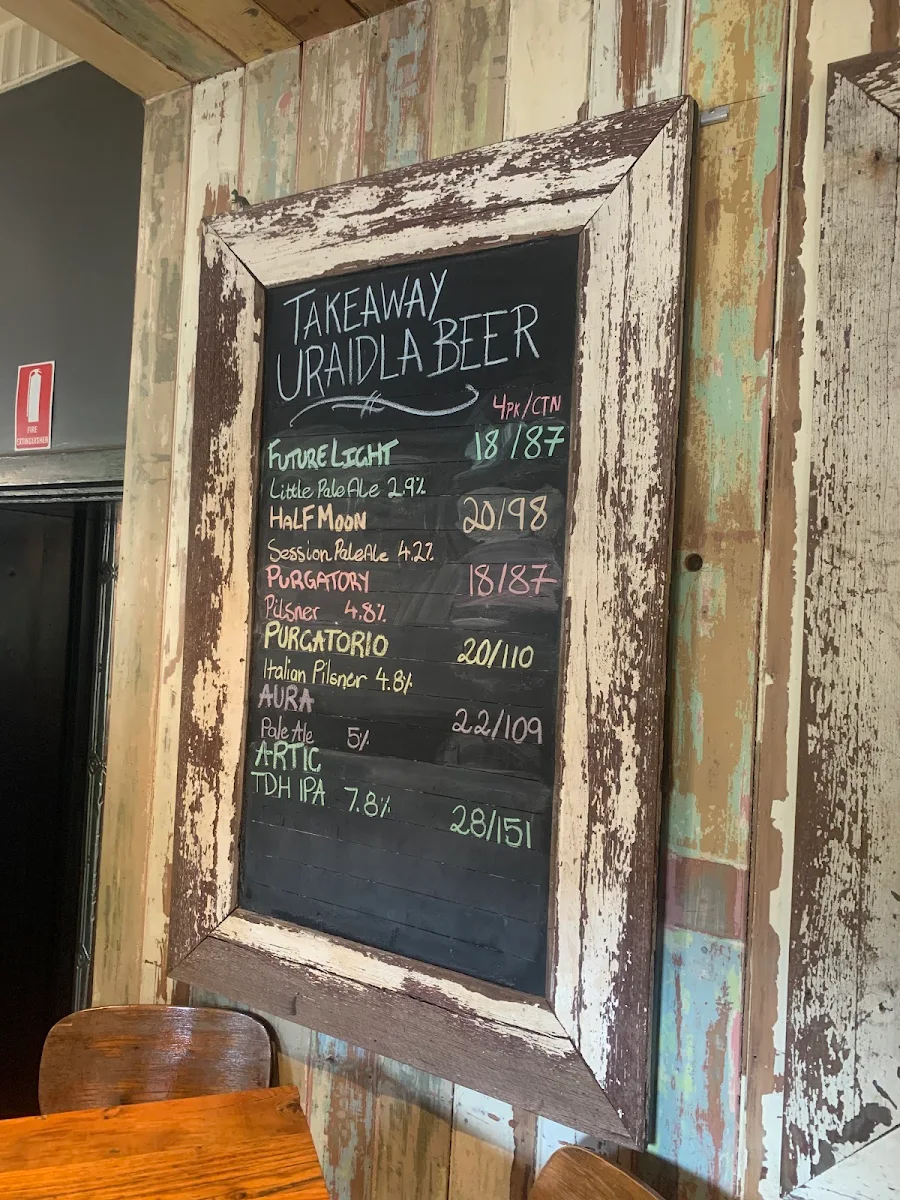 TAKEAWAY
URAIDLA BEER
4PK/CTN
FUTURE LIGHT 18/87
Little Pale Ale 2.9%
HALF MOON 20/98
Session Pale Ale 4.2%
PURGATORY 18/87
Pilsner 4.8%
PURGATORIO 20/110
Italian Pilsner 4.8%
AURA 22/109
Pale Ale 5%
ARTIC
TDH IPA 7.8% 28/151
FIRE
EXTINGUISHER